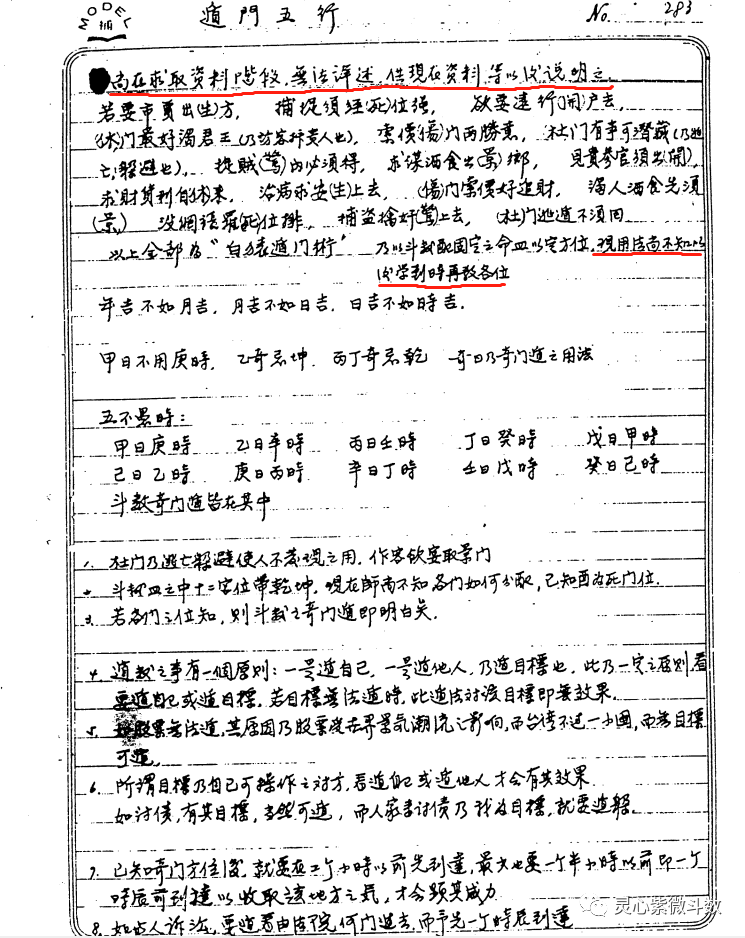 MODEL
遁門五行 No. 283
尚在求取資料階段,無法詳述,但現在資料,等以後說明之.
若要市賈出(生)方, 捕捉須經(死)位強, 欲要遠行(開)户去,
(休)门最好謁君王(乃訪客行貴人也), 索債(傷)门內兩勝意, 杜门有事可潛藏(乃逃
亡,躲避也), 捉賊(驚)內必須得, 求謀酒食出(景)鄉, 見貴參官須出(開).
求財貨利自休来, 治病求安(生)上去, (傷)门索債好追財, 謁人酒食先須
(景), 位排, 捕盜擒奸(驚)上去, (杜)门逃遁不須回
以上全部为 "白猿遁门術" 乃以斗数配固定之命四以定方位,現用法尚不知以
後学到時再教各位
年吉不如月吉, 月吉不如日吉, 日吉不如時吉.
甲日不用庚時, 乙奇忌坤, 丙丁奇忌乾 奇日乃奇门遁之用法
五不遇時:
甲日庚時 乙日辛時 丙日壬時 丁日癸時 戊日甲時
己日乙時 庚日丙時 辛日丁時 壬日戊時 癸日己時
斗数奇门遁皆在其中
1. 杜门乃逃亡躲避使人不發現之用, 作客飲宴取景门
2. 斗数四之中十二宮位帶乾坤, 現在師尚不知各门如何分配, 已知酉为死门位.
3. 若各门之位知, 則斗数之奇门遁即明白矣.
4. 遁数之事有一個原則: 一是遁自己, 一是遁他人, 乃遁目標也, 此乃一定之原則,看
要遁自己或遁目標, 若目標無法遁時, 此遁法对該目標即無效果.
5. 如股票無法遁, 其原因乃股票受世界景氣潮流之影响, 而台湾不过一小國, 而無目標
可遁.
6. 所謂目標乃自己可操作之对方, 看遁自己或遁他人才会有其效果
如討債, 有其目標, 當然可遁, 而人家来討債乃我为目標, 就要遁躲.
7. 已知奇门方位後, 就要在二个小時以前先到達, 最少也要一个半小時以前即一个
時辰前到達以收取该地方之氣, 才会顯其威力
8. 如占人訴訟, 要遁看由法院何门進去, 而早先一个時辰到達
灵心紫微斗数